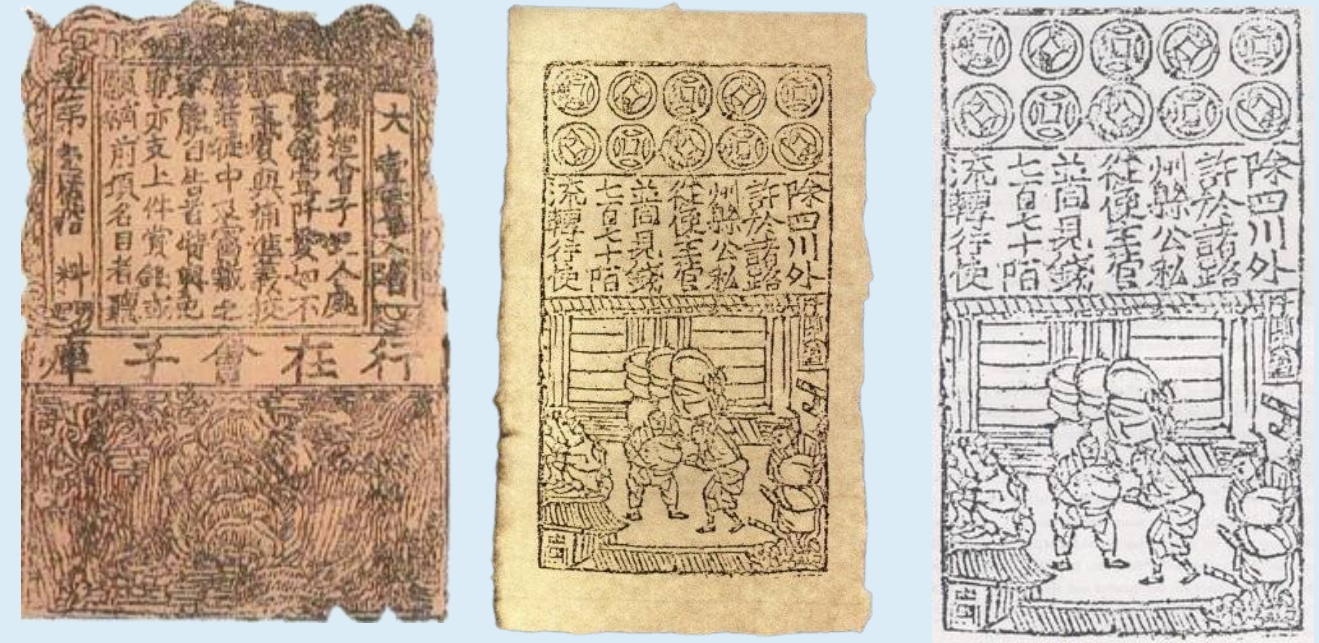 大壹貫文省
敕偽造會子犯人處
斬賞錢壹阡貫如不
願支賞與補進義校
尉若徒中及窩藏之
家能自告首特與免
罪亦支上件賞錢或
願補前項名目者聽
第 料
行在會子庫
除四川外
許於諸路
州縣公私
從便主管
並同見錢
七百七十陌
流轉行使
除四川外
許於諸路
州縣公私
從便主管
並同見錢
七百七十陌
流轉行使